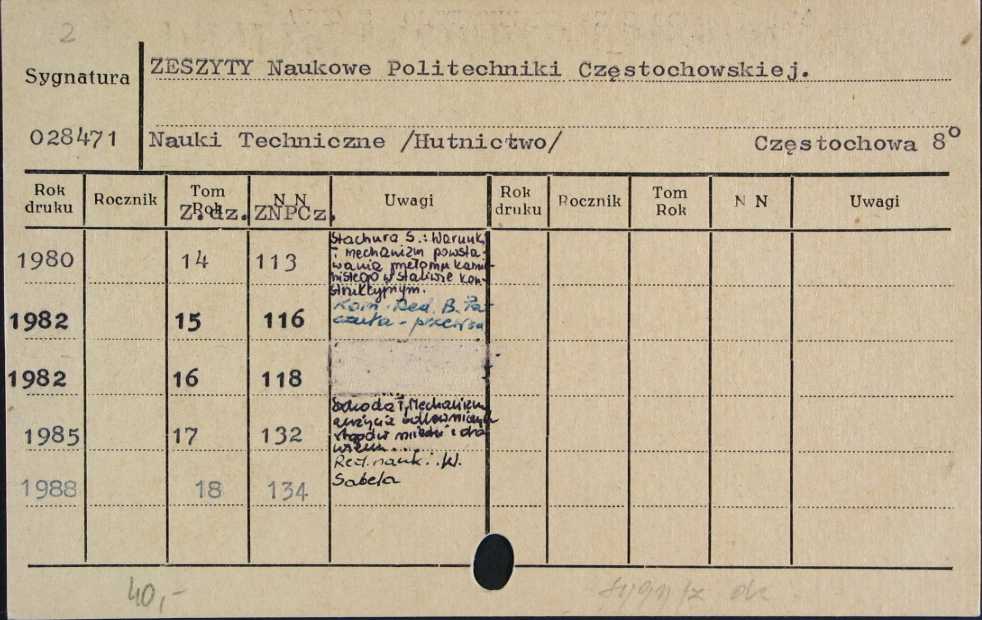 2
Sygnatura
ZESZYTY Naukowe Politechniki Częstochowskiej.
028471
Nauki Techniczne /Hutnictwo/ Częstochowa 8°
Rok druku Rocznik Tom Rok N N Uwagi Rok druku Rocznik Tom Rok N N Uwagi
Z.dz. ZNPCz.
1980 14 113
Stachura S.: Warunki
i mechanizm powsta-
wania przełomu kamie-
nistego w staliwie kon-
strukcyjnym.
1982 15 116
Kom. Red. B.
1982 16 118
1985 17 132
Mechanizm
zużycia
stopów miedzi
Red. nauk. W.
1988 18 134
Sabela
40,-